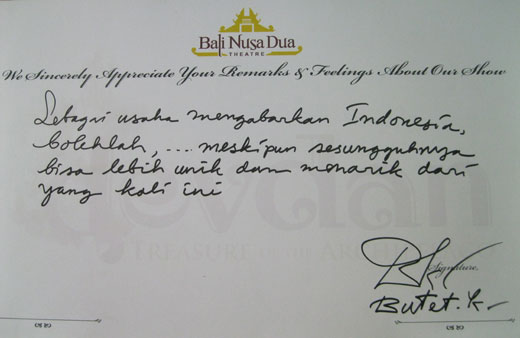 Bali Nusa Dua
THEATRE
We Sincerely Appreciate Your Remarks & Feelings About Our Show
Sebagai usaha mengabarkan Indonesia,
bolehlah, .... meskipun sesungguhnya
bisa lebih unik dan menarik dari
yang kali ini
Devdan
TREASURE OF THE ARCHIPELAGO
Signature,
Butet. K-